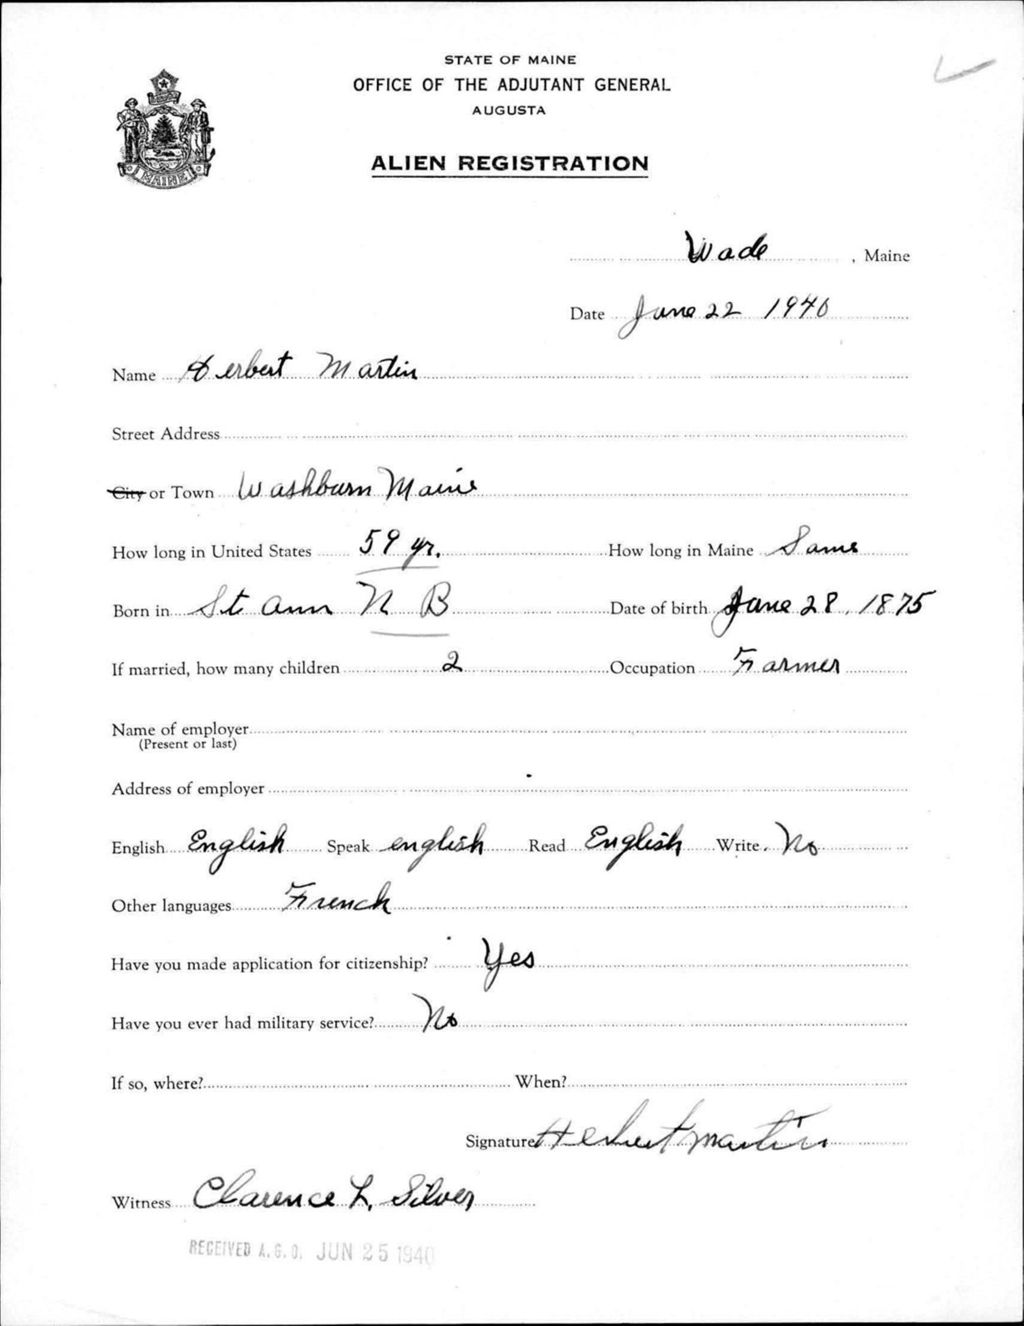 STATE OF MAINE
OFFICE OF THE ADJUTANT GENERAL
AUGUSTA
ALIEN REGISTRATION
MAINE
Wade, Maine
Date June 22 1940
Name Herbert Martin
Street Address
City or Town Washburn Maine
How long in United States 59 yr. How long in Maine Same
Born in St Ann N B Date of birth June 28, 1875
If married, how many children 2 Occupation Farmer
Name of employer
(Present or last)
Address of employer
English English Speak english Read English Write No
Other languages French
Have you made application for citizenship? Yes
Have you ever had military service? No
If so, where? When?
Signature Herbert Martin
Witness Clarence L. Silver
RECEIVED A.G.O. JUN 25 1940